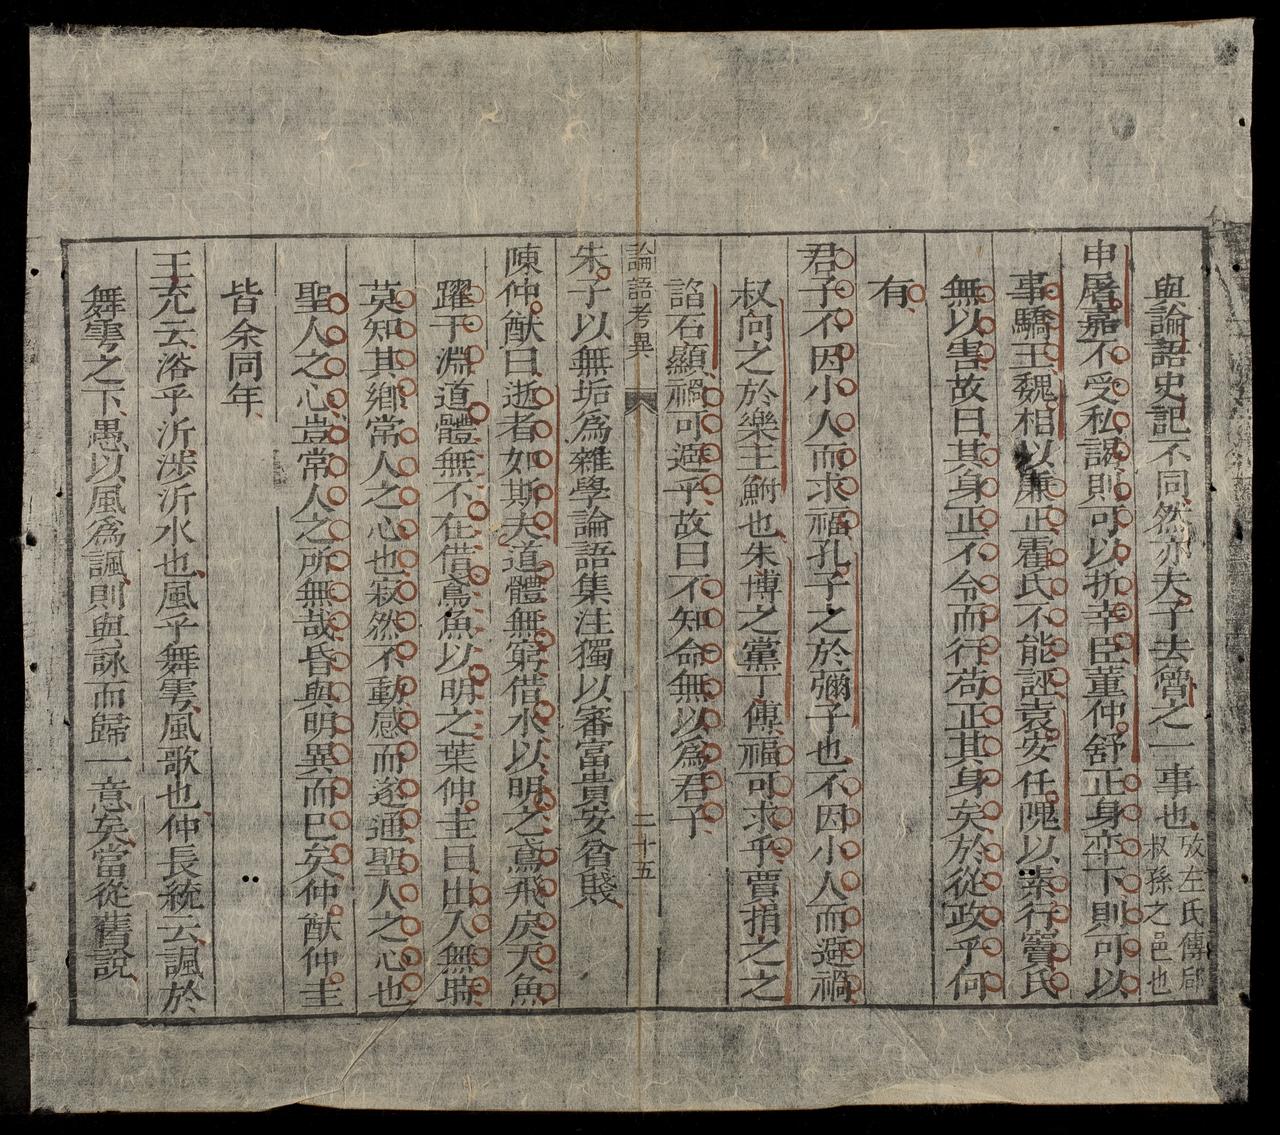 與論語史記不同然亦夫子去魯之一事也攷左氏傳郈叔孫之邑也
申屠嘉不受私謁則可以折幸臣董仲舒正身率下則可以
事驕王魏相以廉正霍氏不能誣袁安任隗以素行竇氏
無以害故曰其身正不令而行苟正其身矣於從政乎何
有
君子不因小人而求福孔子之於彌子也不因小人而避禍
叔向之於樂王鮒也朱博之黨丁傅福可求乎賈捐之之
諂石顯禍可避乎故曰不知命無以為君子
論語考異
二十五
朱子以無垢為雜學論語集注獨以審富貴安貧賤
陳仲猷曰逝者如斯夫道體無窮借水以明之鳶飛戾天魚
躍于淵道體無不在借鳶魚以明之葉仲圭曰出入無時
莫知其鄉常人之心也寂然不動感而遂通聖人之心也
聖人之心豈常人之所無哉昏與明異而已矣仲猷仲圭
皆余同年
王充云浴乎沂涉沂水也風乎舞雩風歌也仲長統云諷於
舞雩之下愚以風為諷則與詠而歸一意矣當從舊說